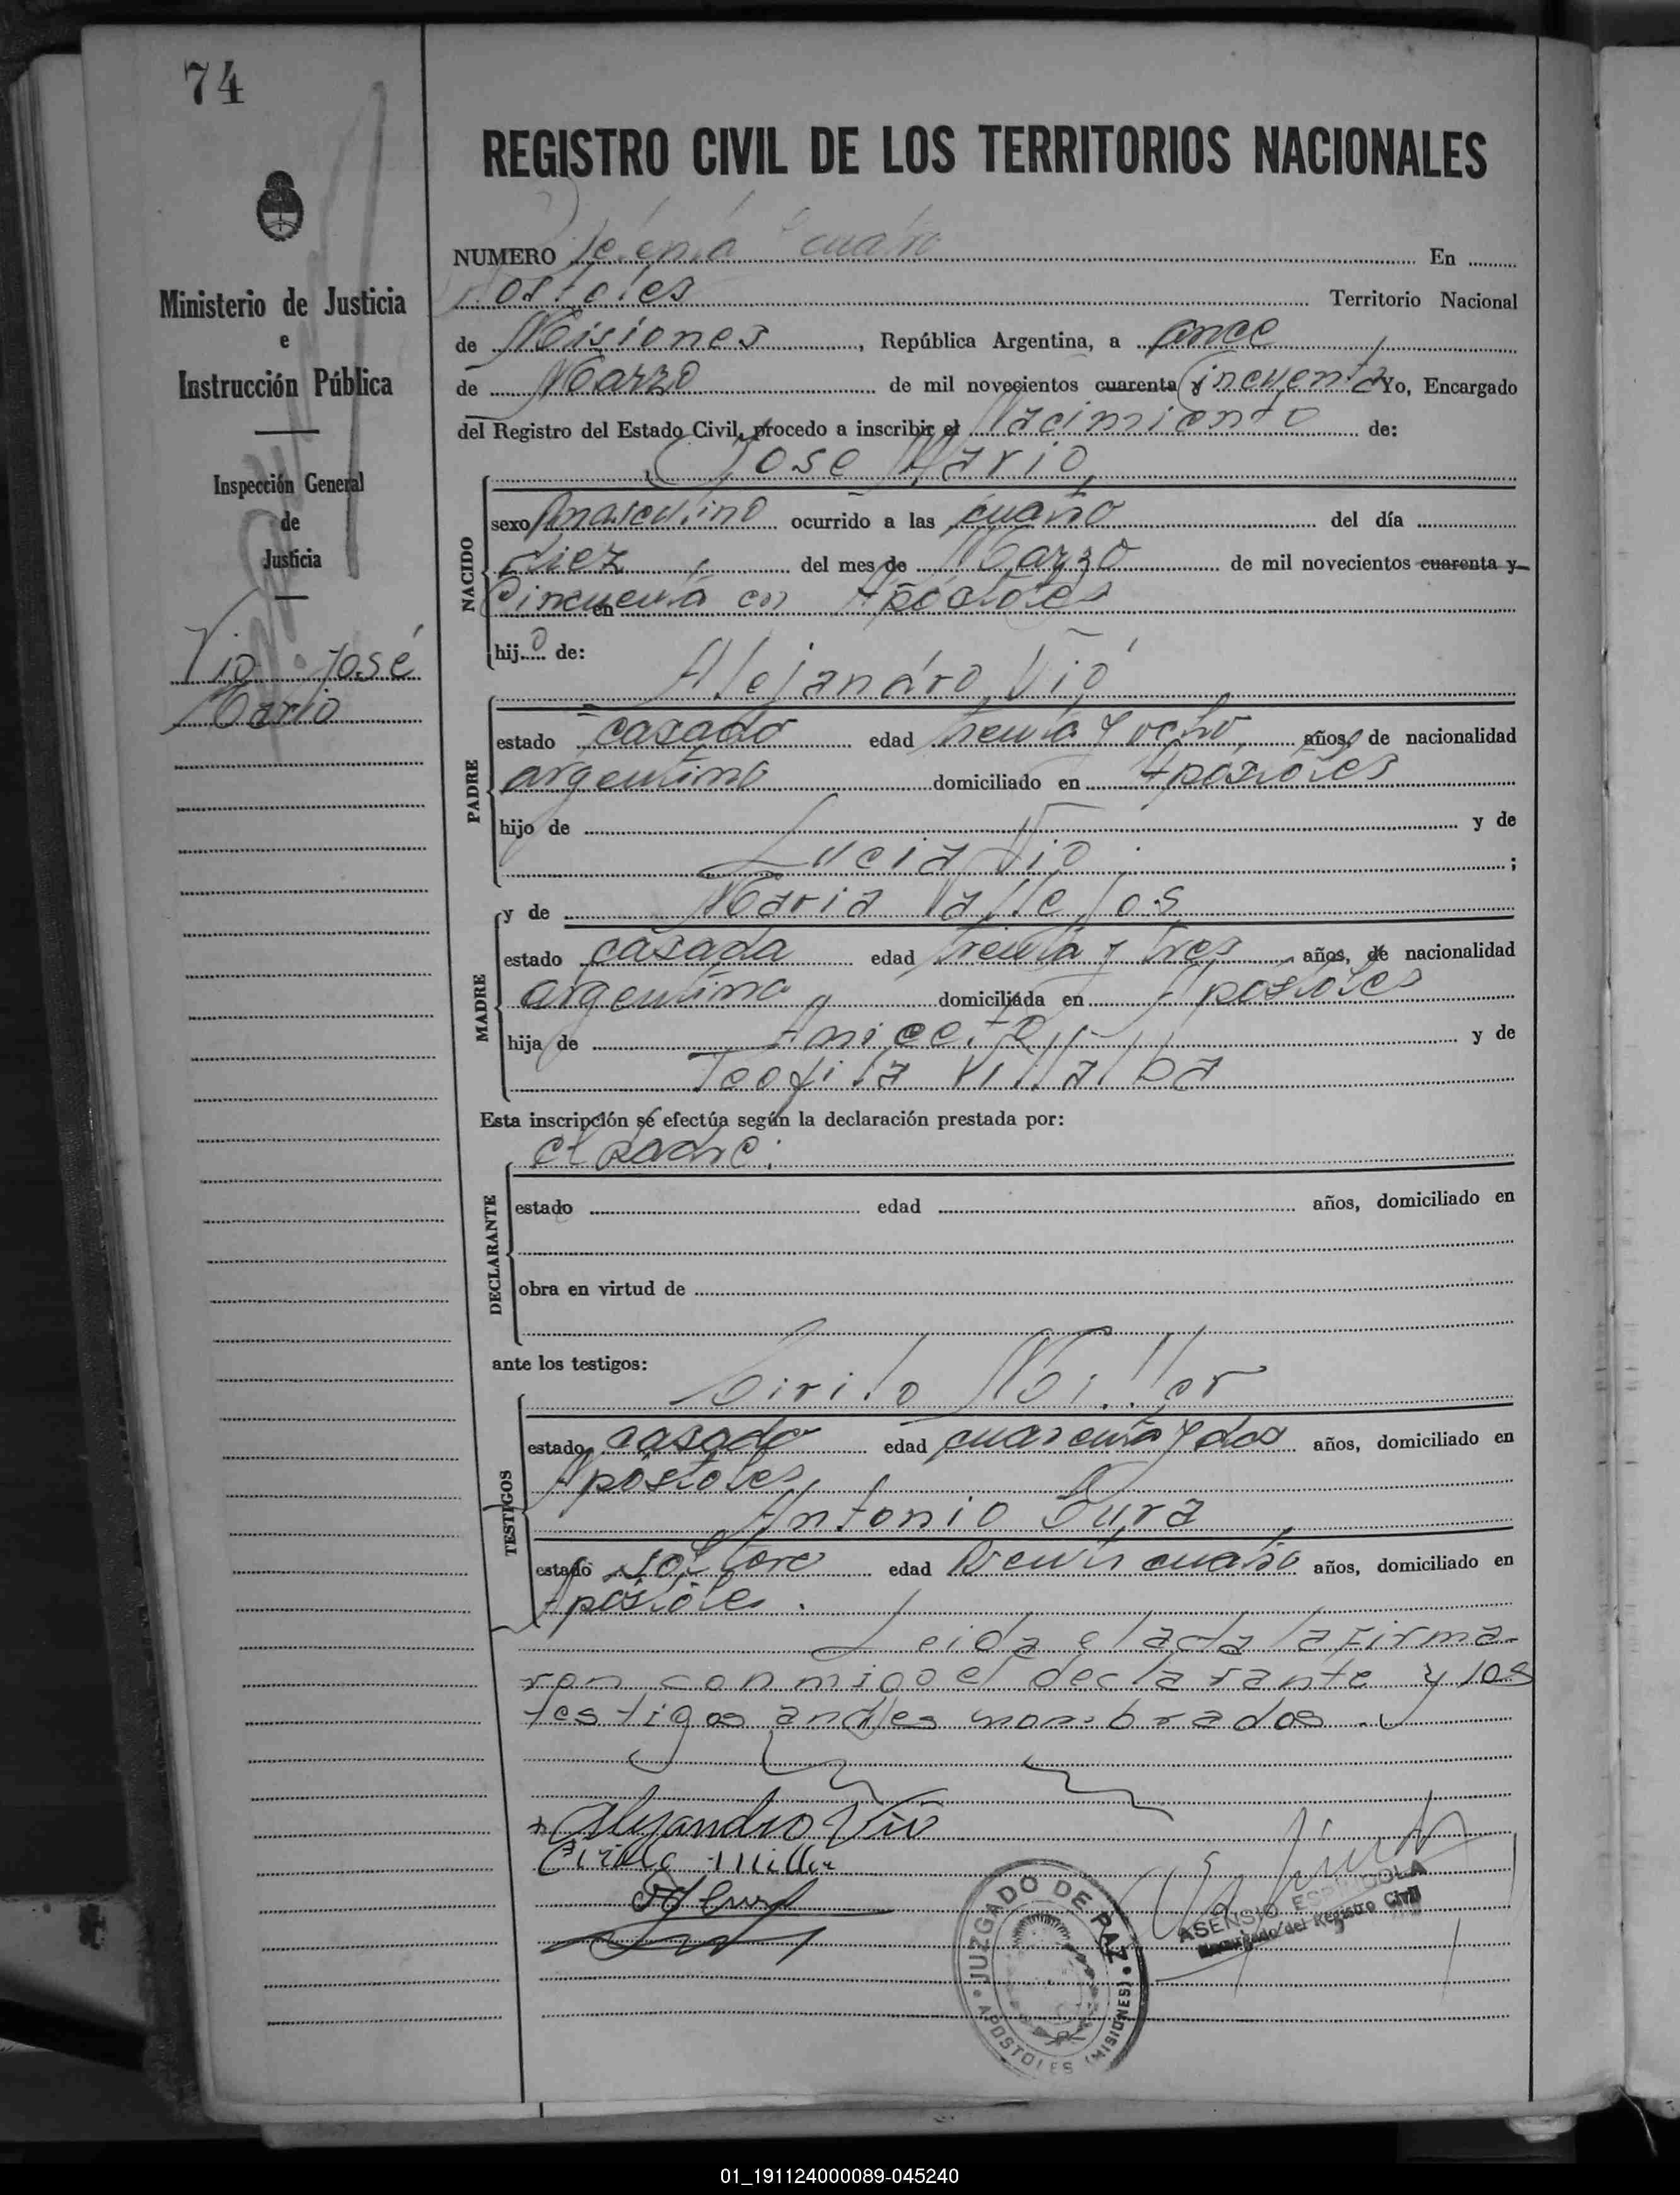 74
REGISTRO CIVIL DE LOS TERRITORIOS NACIONALES
NUMERO Setenta cuatro En
Apostoles Territorio Nacional
de Misiones, República Argentina, a once
de Marzo de mil novecientos cuarenta y Cincuenta Yo, Encargado
del Registro del Estado Civil, procedo a inscribir el Nacimiento de:
Jose Mario
Ministerio de Justicia
e
Instrucción Pública
Inspección General
de
Justicia
Vio José
Mario
NACIDO
sexo masculino ocurrido a las cuatro del día
diez del mes de Marzo de mil novecientos cuarenta y
Cincuenta en en Apóstoles
hijo de:
Alejandro Vió
PADRE
estado casado edad treinta y ocho años, de nacionalidad
argentina domiciliado en Apostoles
hijo de y de
Lucia Vio ;
y de Maria Vallejos
MADRE
estado casada edad treinta y tres años, de nacionalidad
argentina domiciliada en Apóstoles
hija de Aniceto y de
Teofila Villalba
Esta inscripción se efectúa según la declaración prestada por:
el padre.
DECLARANTE
estado edad años, domiciliado en
obra en virtud de
ante los testigos:
Cirilo Miller
TESTIGOS
estado casado edad cuarenta y dos años, domiciliado en
Apóstoles
Antonio Sura
estado soltero edad veinticuatro años, domiciliado en
Apóstoles.
Leida el acta la firma-
ron conmigo el declarante y los
testigos antes nombrados.
Alejandro Vio
Cirilo Miller
JUZGADO DE PAZ
APOSTOLES (MISIONES)
ASENSIO ESPINDOLA
Encargado del Registro Civil
01_191124000089-045240